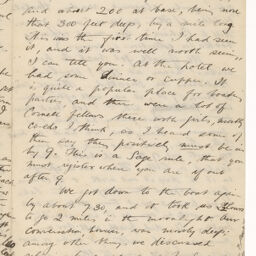 and about 200 at base, being now
that 300 feet deep, by a mile long
This was the first time I had seen
it, and it was well worth seeing
I can tell you. At the hotel, we
had some dinner or supper. It
is quite a popular place for
parties, and there were a lot of
Cornell fellows there with girls, mostly
co-eds I think, as I heard some of
them say they positively must be in
by 9. This is a Sage rule, that you
must register where you are if out
after 9.
We got down to the boat again
by about 7.30, and it took us 2 hours
to go 2 miles, in the moonlight. Our
Conversation however, was mostly deep:
among other things, we discussed